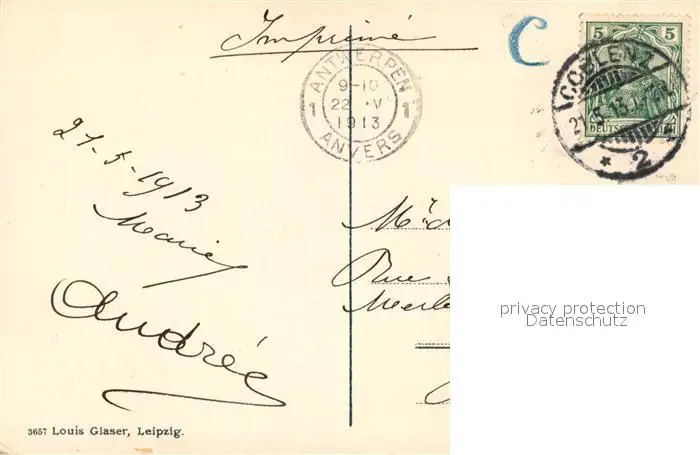 Imprimé
C
5 5
COBLENZ
DEUTSCHES REICH
* 2
ANTWERPEN
1 9-10 1
22 V
1913
ANVERS
21-5-1913
Marie
Andrée
Rue
privacy protection
Datenschutz
3657 Louis Glaser, Leipzig.